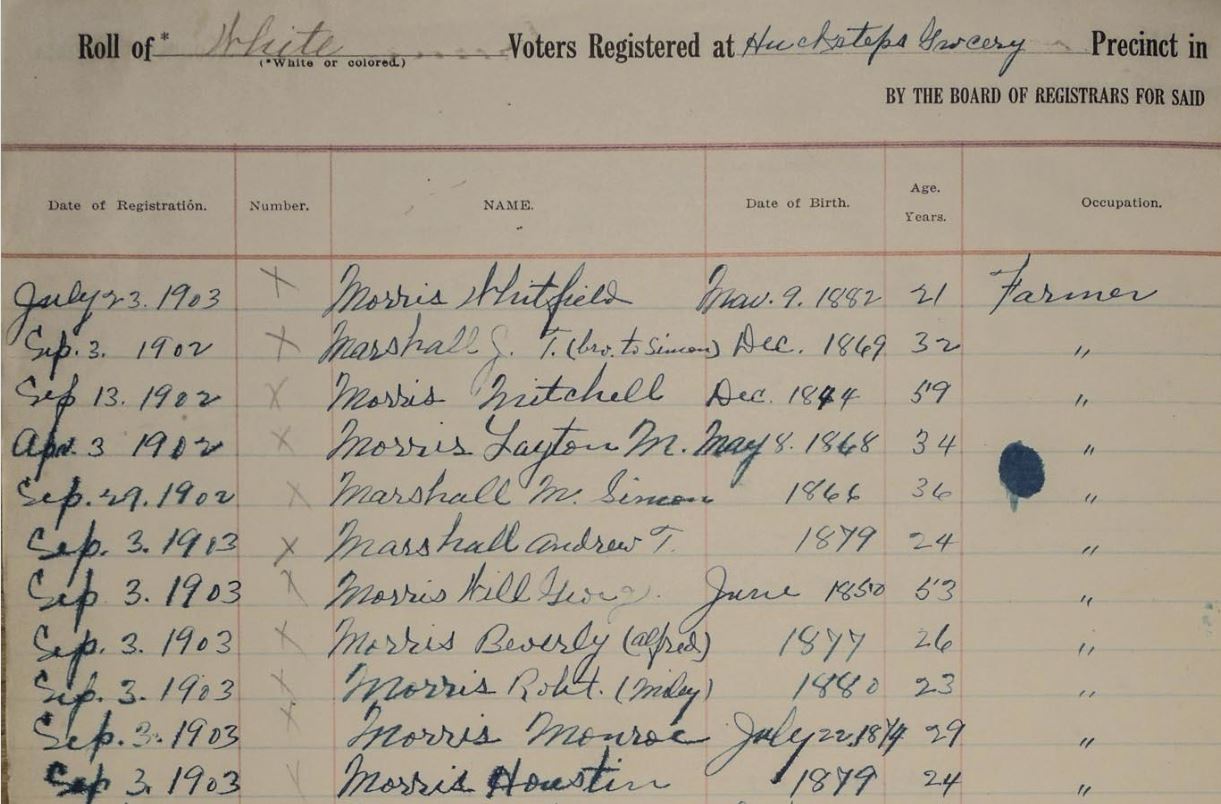 Roll of* White Voters Registered at Hucksteps Grocery Precinct in
(*White or colored.)
BY THE BOARD OF REGISTRARS FOR SAID
Date of Registration. Number. NAME. Date of Birth. Age. Years. Occupation.
July 23. 1903 X Morris Whitfield Mav. 9. 1882 21 Farmer
Sep. 3. 1902 X Marshall J. T. (bro. to Simon) Dec. 1869 32 "
Sep 13. 1902 X Morris Mitchell Dec. 1844 59 "
Apr. 3 1902 X Morris Layton M. May 8. 1868 34 "
Sep. 29. 1902 X Marshall M. Simon 1866 36 "
Sep. 3. 1903 X Marshall Andrew T. 1879 24 "
Sep. 3. 1903 X Morris Will June 1850 53 "
Sep. 3. 1903 X Morris Beverly (Alfred) 1877 26 "
Sep. 3. 1903 X Morris Robt. 1880 23 "
Sep. 3. 1903 X Morris Monroe July 22. 1874 29 "
Sep 3. 1903 Morris Houstin 1879 24 "